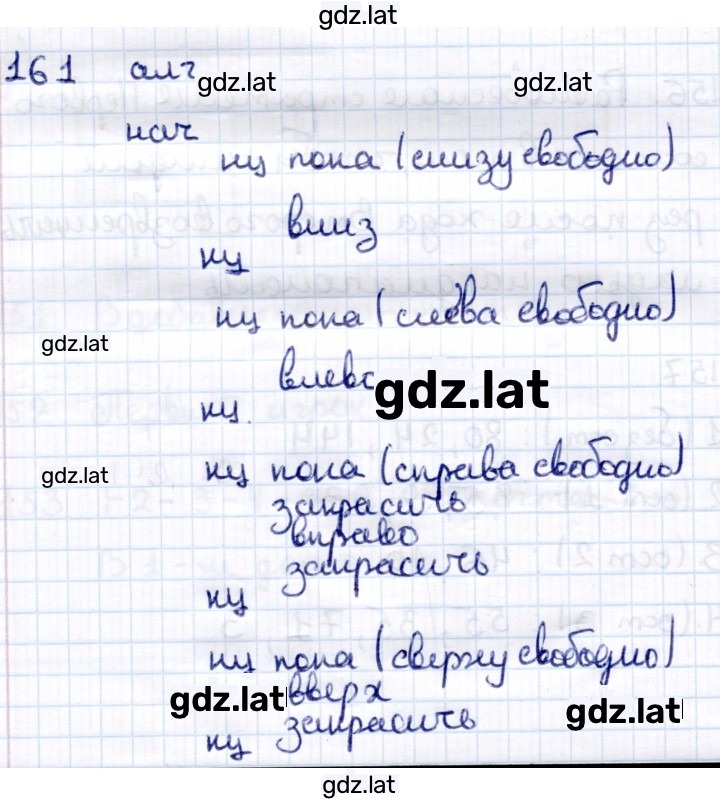 gdz.lat
161 алг
gdz.lat gdz.lat
нач
нц пока (снизу свободно)
вниз
нц
нц пока (слева свободно)
gdz.lat
влево
gdz.lat
нц.
нц пока (справа свободно)
gdz.lat
закрасить
вправо
закрасить
нц
нц пока (сверху свободно)
gdz.lat вверх
закрасить gdz.lat
нц
gdz.lat